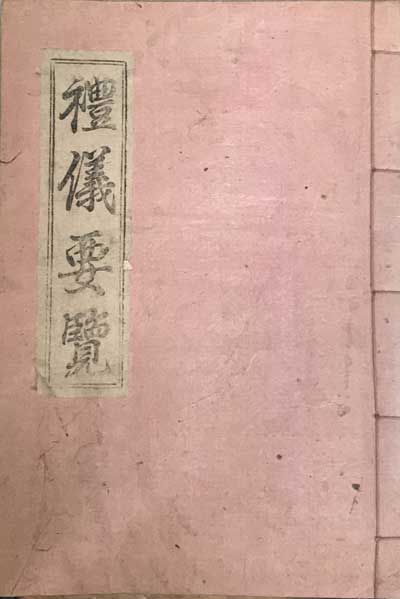 禮儀要覽